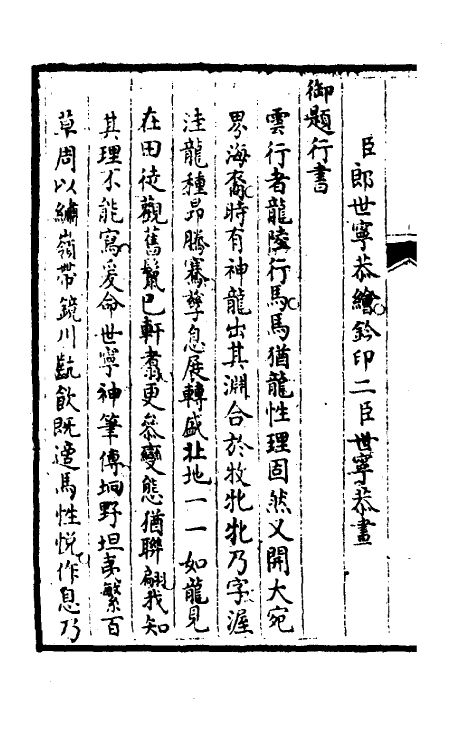 臣郎世寧恭繪鈐印二臣世寧恭畫
御題行書
雲行者龍陸行馬馬猶龍性理固然又聞大宛
界海裔時有神龍出其淵合於牧牝牝乃字渥
洼龍種昂騰騫孳息展轉盛北地一一如龍見
在田徒觀舊鬛已軒翥更參變態猶聯翩我知
其理不能寫爰命世寧神筆傳坰野坦夷繁百
草周以繡嶺帶鏡川齕飲既適馬性悅作息乃